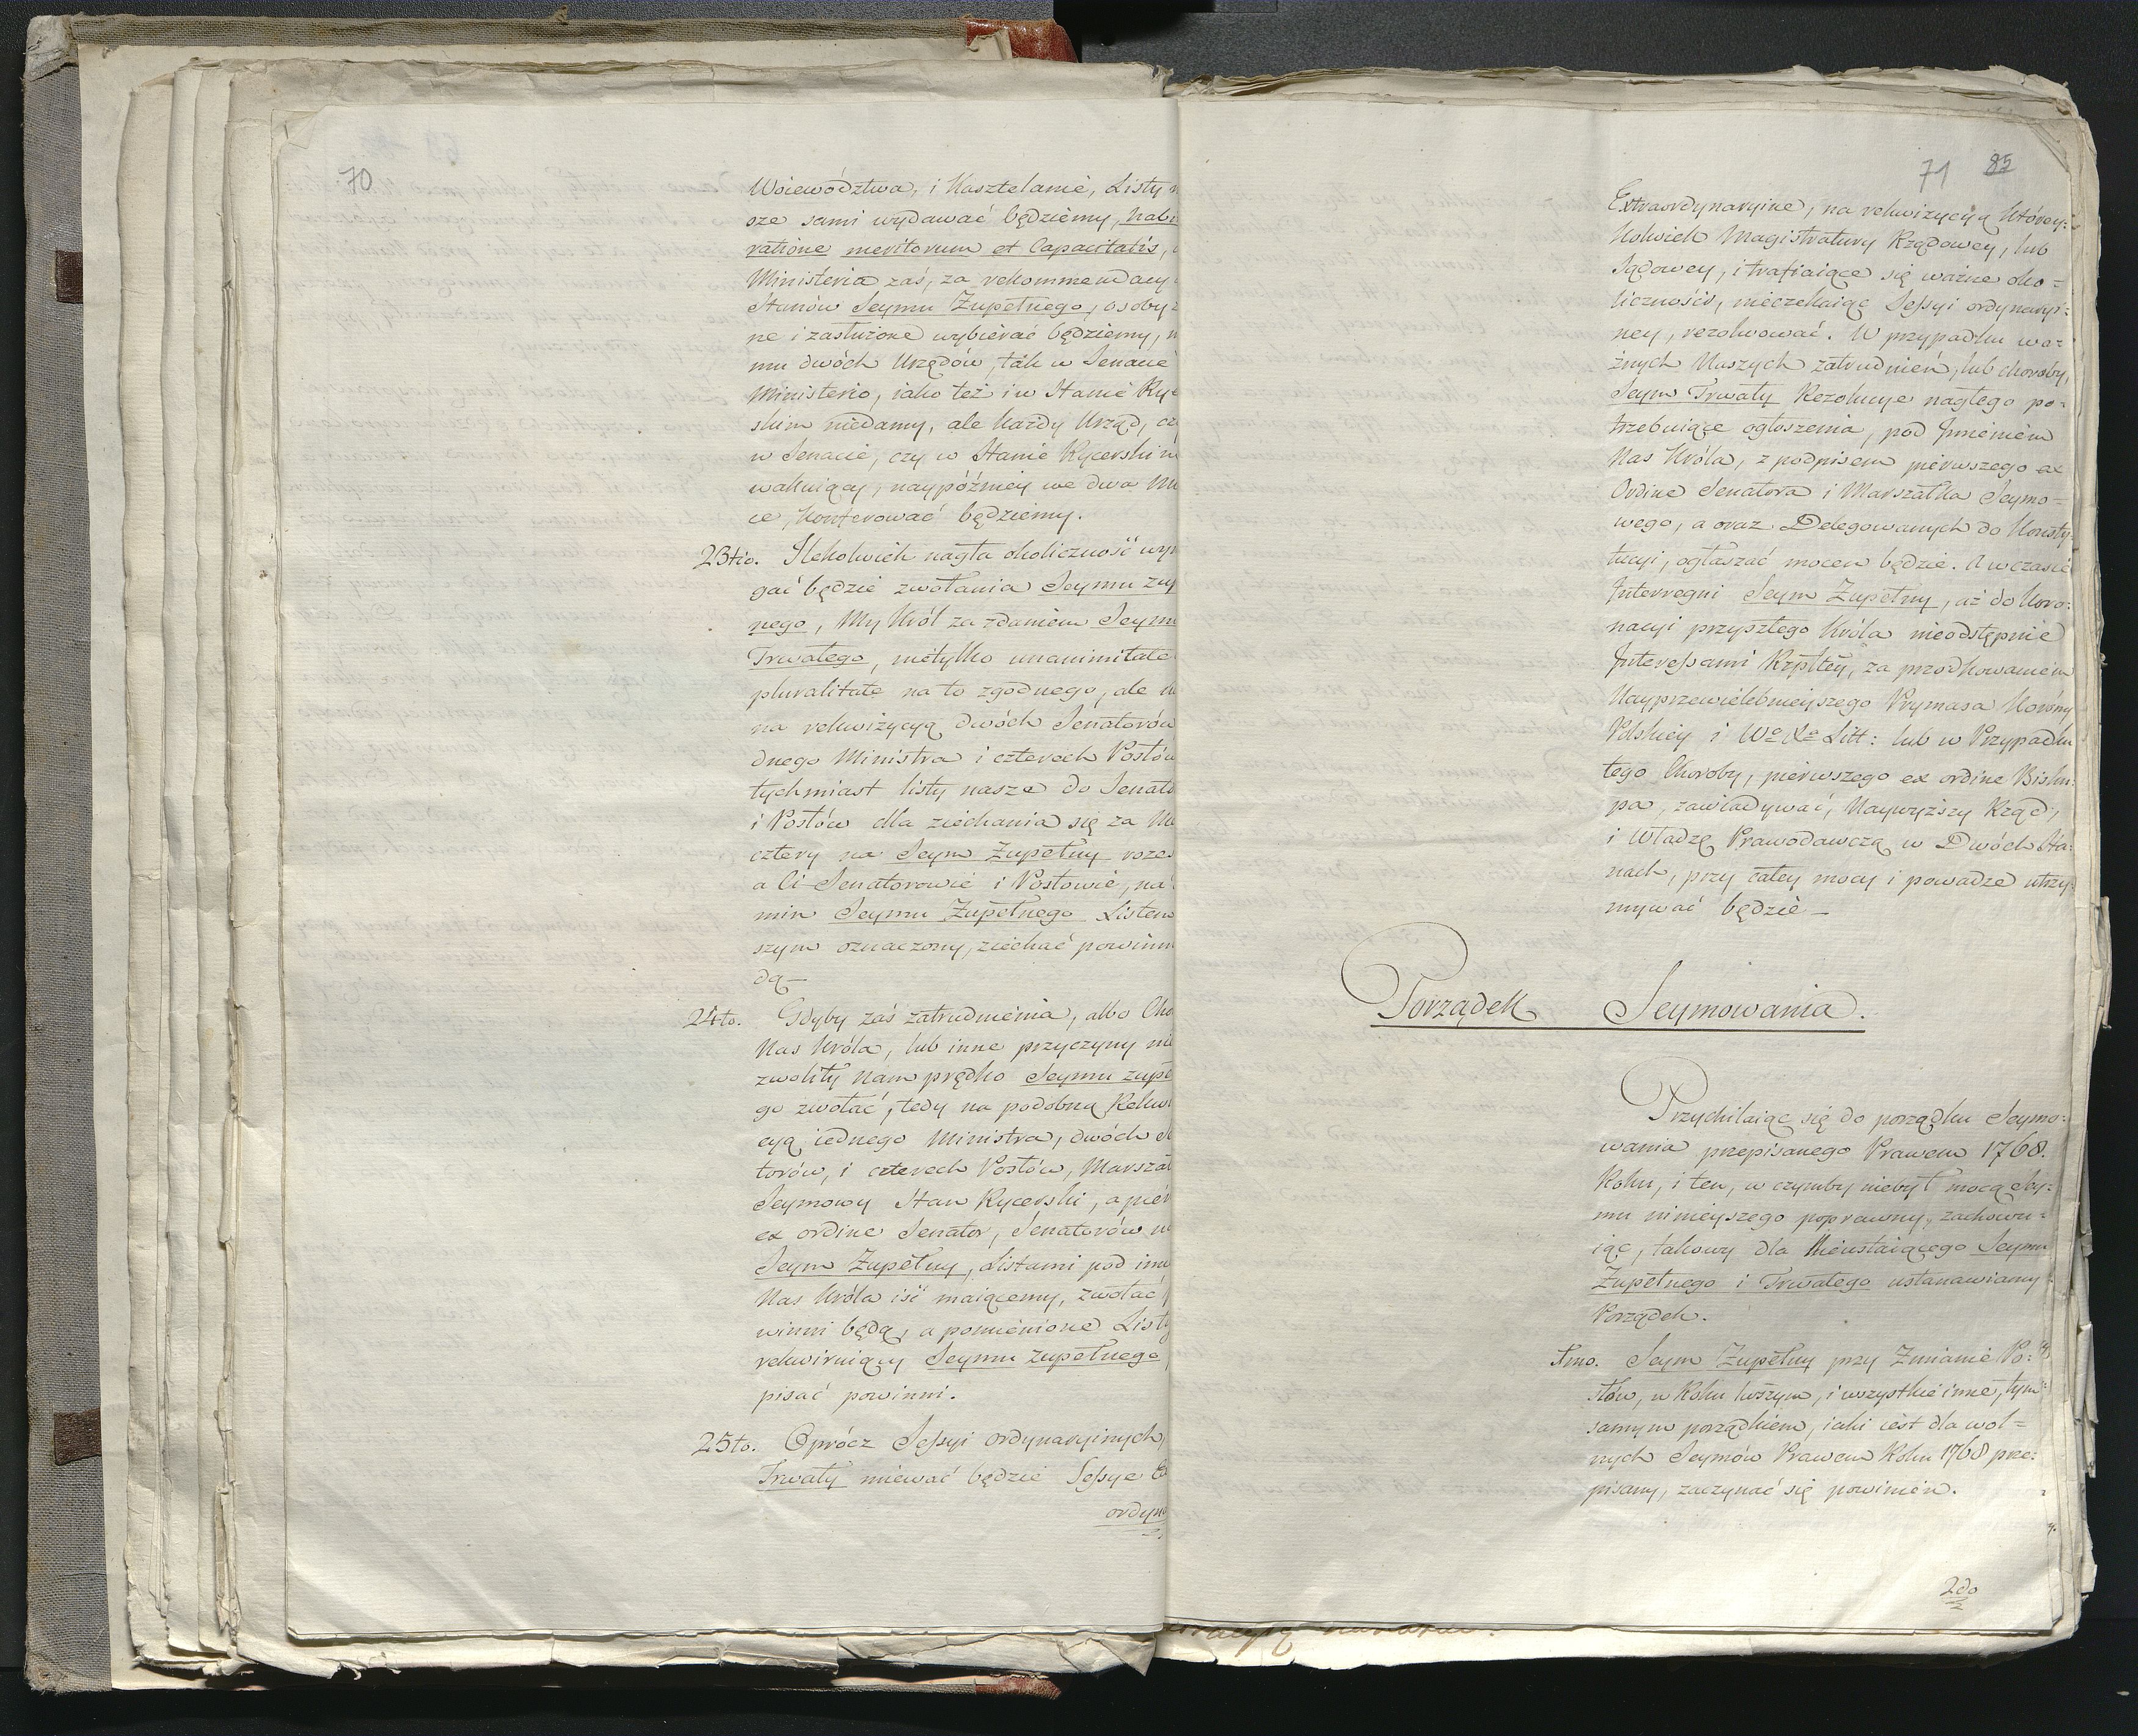 70
Woiewództwa, i Kasztelanie, Listy n
sze sami wydawać będziemy, habi
ratione meritorum et Capacitatis,
Ministeria zaś, za rekommendacy
Stanów Seymu Zupełnego, osoby z
ne i zasłużone wybierać będziemy, n
mu dwóch Urzędów, tak w Senacie
Ministerio, iako też i w Stanie Ryc
skim niedamy, ale każdy Urząd, cz
w Senacie, czy w Stanie Rycerskim
wakuiący, naypóźniey we dwa Mi
ce, konferować będziemy.
23tio. Ilekolwiek nagła okoliczność wym
gać będzie zwołania Seymu zup
nego, My Król za zdaniem Seymu
Trwałego, nietylko unanimitate
pluralitate na to zgodnego, ale i
na rekwizycyą dwóch Senatorów
dnego Ministra i czterech Posłów
tychmiast listy nasze do Senato
i Posłów dla ziechania się za Nie
cztery na Seym Zupełny roze
a Ci Senatorowie i Posłowie, na
min Seymu Zupełnego Listem
szym oznaczony, ziechać powinni
dą
24to. Gdyby zaś zatrudnienia, albo Cho
Nas Króla, lub inne przyczyny nie
zwoliły Nam prędko Seymu zupe
go zwołać, tedy na podobną Rekwi
cyą iednego Ministra, dwóch Se
torów, i czterech Posłów, Marszał
Seymowy Stan Rycerski, a pier
ex ordine Senator, Senatorów n
Seym Zupełny, Listami pod imie
Nas Króla iść maiącemy, zwołać p
winni będą, a pomienione Listy
rekwiruiący Seymu zupełnego
pisać powinni.
25to. Oprócz Sessyi ordynaryinych,
Trwały miewać będzie Sessye Ex
ordyna
71 85
Extraordynaryine, na rekwizycyą którey:
kolwiek Magistratury Rządowey, lub
Sądowey, i trafiaiące się ważne oko=
liczności, nieczekaiąc Sessyi ordynaryi:
ney, rezolwować. W przypadku wa:
żnych Naszych zatrudnień, lub choroby,
Seym Trwały Rezolucye nagłego po:
trzebuiące ogłoszenia, pod Imieniem
Nas Króla, z podpisem pierwszego ex
Ordine Senatora i Marszałka Seymo=
wego, a oraz Delegowanych do Konsty:
tucyi, ogłaszać mocen będzie. A w czasie
Interregni Seym Zupełny, aż do Koro:
nacyi przyszłego Króla nieodstępnie
Interessami Rzpltey, za przodkowaniem
Nayprzewielebnieyszego Prymasa Korony
Polskiey i Wo Xo Litt: lub w Przypadku
tego Choroby, pierwszego ex ordine Bisku:
pa, zawiadywać, Naywyższy Rząd,
i Władzę Prawodawczą w Dwóch Sta:
nach, przy całey mocy i powadze utrzy:
mywać będzie
Porządek Seymowania.
Przychilaiąc się do porządku Seymo:
wania przepisanego Prawem 1768.
Roku, i ten, w czymby niebył mocą eky:
mu ninieyszego poprawny, zachowu:
iąc, takowy dla Nieustaiącego Seymu
Zupełnego i Trwałego ustanawiamy
Porządek.
Imo. Seym Zupełny przy Zmianie Po:
słów, w Roku ktszym, i wszystkie inne, tym
samym porządkiem, iaki iest dla wol=
nych Seymów Prawem Roku 1768 prze:
pisany, zaczynać się powinien.
2do